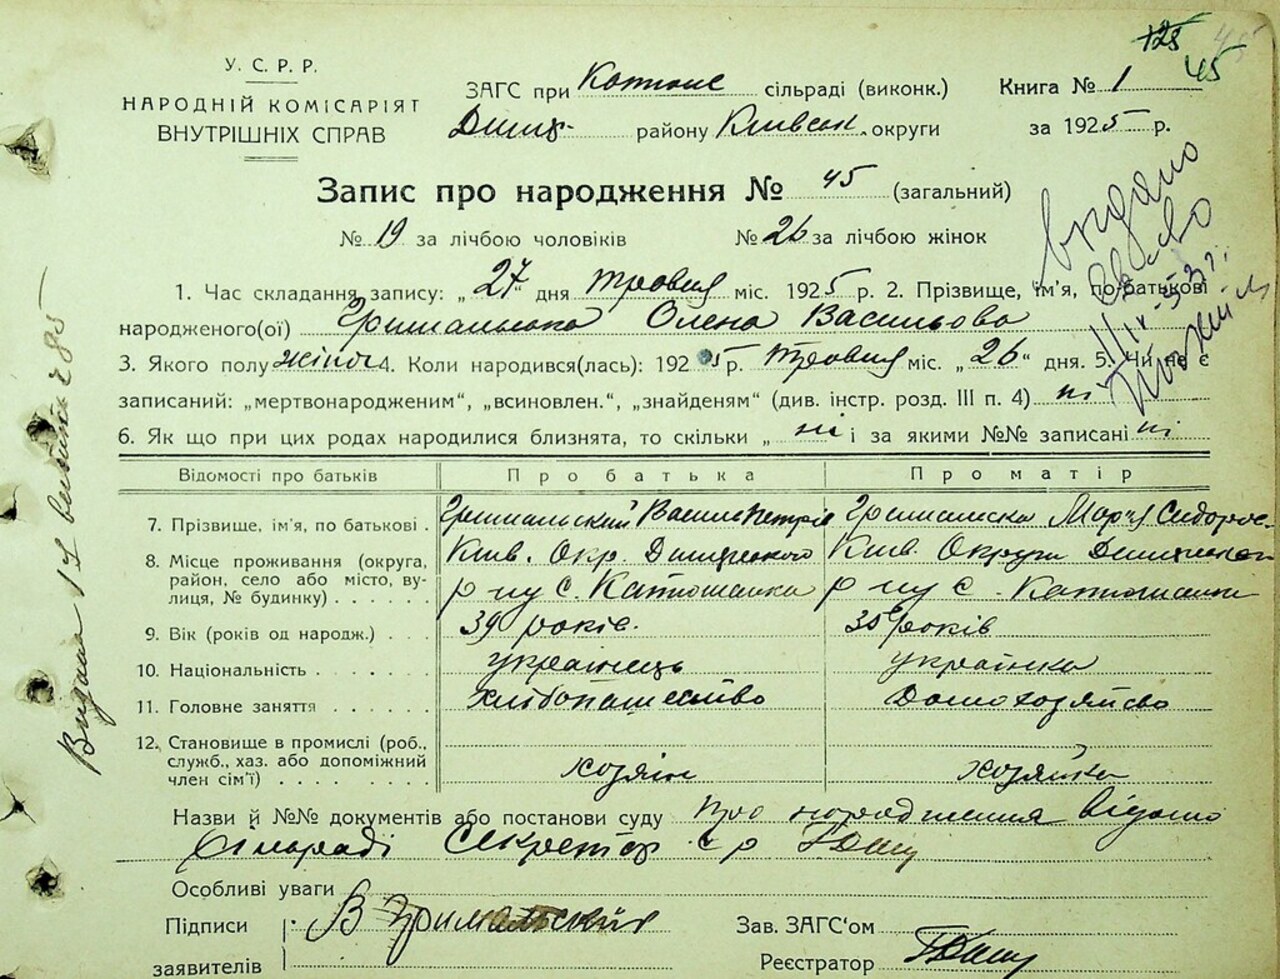 125 45
45
У. С. Р. Р.
НАРОДНІЙ КОМІСАРІЯТ
ВНУТРІШНІХ СПРАВ
ЗАГС при сільраді (виконк.)
Димер. району Київськ. округи
Книга № 1
за 1925 р.
Запис про народження № 45 (загальний)
№ 19 за лічбою чоловіків № 26 за лічбою жінок
1. Час складання запису: „27“ дня травня міс. 1925 р. 2. Прізвище, ім'я, по батькові
народженого(ої) Гримальська Олена Васильова
3. Якого полу жіноч 4. Коли народився(лась): 1925 р. травня міс. „26“ дня. 5. Чи не є
записаний: „мертвонародженим“, „всиновлен.“, „знайденям“ (див. інстр. розд. III п. 4) ні
6. Як що при цих родах народилися близнята, то скільки „ ні і за якими №№ записані ні
Відомості про батьків Про батька Про матір
7. Прізвище, ім'я, по батькові . Гримальский Василь Петрів Гримальска Мар'я Сидоров
8. Місце проживання (округа, Київ. Окр. Димерського Київ. Округи Димерског
район, село або місто, ву-
лиця, № будинку) . . . . . р ну С. Катюжанка р ну С. Катюжанки
9. Вік (років од народж.) . . . 39 років. 35 років
10. Національність . . . . . . українець українка
11. Головне заняття . . . . . . хлібопашество Домохозяйсво
12. Становище в промислі (роб.,
служб., хаз. або допоміжний
член сім'ї) . . . . . . . . хозяін хозяйка
Назви й №№ документів або постанови суду Про народження відомо
Сільраді Секретар с р
Особливі уваги
Підписи В Гримальский Зав. ЗАГС'ом
заявителів Реєстратор
видано
11/IV-53 г.
Видана